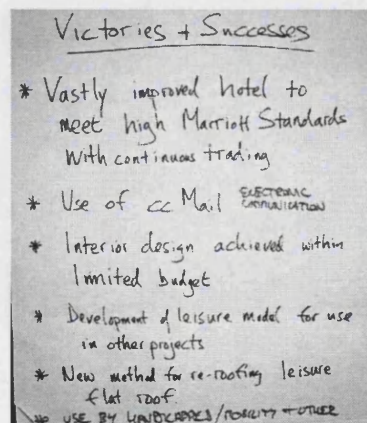 Victories + Successes
* Vastly improved hotel to
meet high Marriott Standards
with continuous trading
* Use of cc Mail ELECTRONIC
COMMUNICATION
* Interior design achieved within
limited budget
* Development of leisure model for use
in other projects
* New method for re-roofing leisure
flat roof.
* USE BY HANDICAPPED/MOBILITY + OTHER